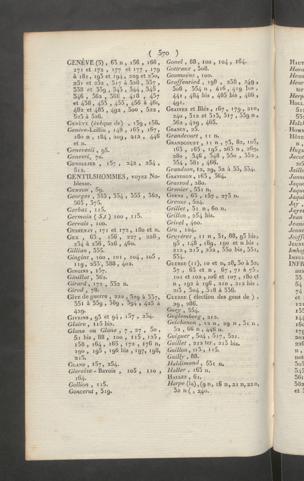 ( 370 )
GENÈVE (3), 65 n, 156, 168,
271 et 172, 177 et 177, 179
à 181, 195 et 194, 209 et 250,
251 et 252, 517 à 520, 337,
338 et 359, 345, 344, 348,
346, 362, 368, 418, 457
et 458, 455, 455, 456 à 460,
482 et 485, 492, 500, 522,
525 à 528.
GENÈVE (évêque de), 139, 158.
Genève-Lullin, 148, 165, 167,
180 n, 184, 209, 212, 448
et n.
Genevesii, 95.
Genevi, 70.
GENOILLIER, 157, 242, 254,
512.
GENTILSHOMMES, voyez No-
blesse.
GENTOD, 59.
Georges, 353, 354, 355, 362,
363, 375.
Gerbais, 115.
Germain ( S.t ) 100, 115.
Gervais, 100.
GESSENAY, 171 et 172, 180 et n.
GEX, 65, 156, 227, 228,
254 à 256, 326, 460.
Giffrion, 355.
Gingins, 100, 101, 104, 105,
119, 255, 388, 402.
GINGINS, 157.
Gimillat, 362.
Girard, 172, 332 n.
Girod, 78.
Gîte de guerre, 220, 329 à 337,
351 à 359, 369, 394, 425 à
429.
GIVRINS, 93 et 94, 157, 254.
Glairo, 115 bis.
Glana ou Glane, 7, 27, 50,
51 bis, 88, 100, 115, 125,
158, 164, 165, 172, 176 n,
190, 195, 196 bis, 197, 198,
215.
GLAND, 157, 254.
Gleresse-Bavois, 105, 110,
164.
Gollion, 115.
Goncerut, 519.
Gonel, 88, 100, 104, 164.
Gottraux, 308.
Goumoëns, 100.
Graffenried, 198, 238, 249,
308, 354 n, 416, 419 bis,
441, 484 bis, 485 bis, 486,
491.
GRAINES et Blés, 167, 179, 210,
240, 312 et 313, 317, 339 n,
362, 479, 465.
GRANCY, 25.
Grandcourt, 11 n.
GRANDCOURT, 11 n, 75, 82, 103,
163, 165, 195, 265 n, 269,
280, 348, 348, 350, 352,
354, 381, 466.
Grandson, 12, 29, 32 à 35, 534.
GRATTAVIN, 163, 364.
Gravrod, 280.
Grenier, 531 n.
GRENS, 65, 157, 273 n.
Greux, 524.
Grillet, 51 n, 60 n.
Grillon, 254 bis.
Grivel, 400.
Gro, 104.
Gruyères, 11 n, 51, 88, 95 bis,
98, 148, 169, 190 et n bis,
212, 225, 252, 332 bis, 531,
534.
GUERRE (11), 10 et n, 28, 30 à 32,
57, 65 et n, 67, 72 à 75,
102 et 103, 106 et 107, 180 et
n, 192 à 196, 210, 212 bis,
215, 304, 318 à 336.
GUERRE ( élection des gens de ),
29, 286.
Guex, 534.
Guglenberg, 212.
Guichanon, 12 n, 29 n, 31 n,
32, 66 n, 442 n.
Guiguer, 504, 517, 521.
Guillet, 212 ter, 213 bis.
Guillon, 115, 115.
Guilly, 88.
Haldimand, 531 n.
Haller, 165 n.
HALLEN, 61.
Harpe (la), (9 n, 18 n, 21 n, 22 n,
32 n (, 240.